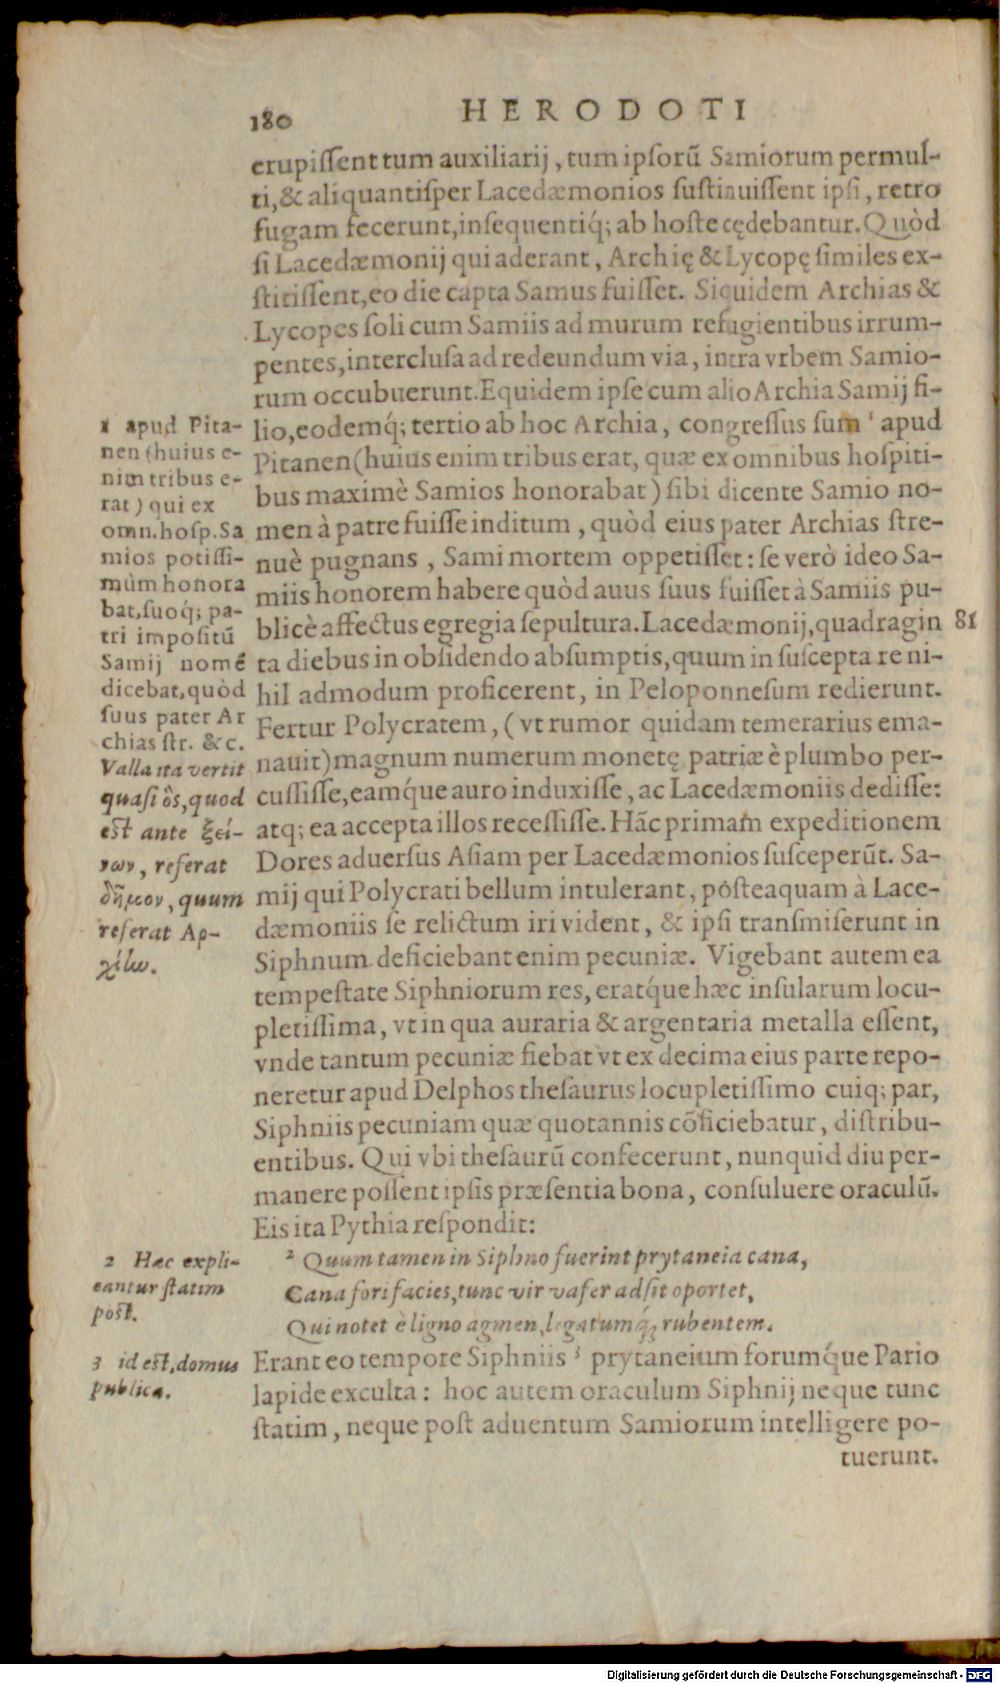 180 HERODOTI
erupiſſent tum auxiliarij, tum ipſorū Samiorum permul-
ti, & aliquantiſper Lacedæmonios ſuſtinuiſſent ipſi, retro
fugam fecerunt, inſequentiq́; ab hoſte cędebantur. Quòd
ſi Lacedæmonij qui aderant, Archię & Lycopę ſimiles ex-
ſtitiſſent, eo die capta Samus fuiſſet. Siquidem Archias &
Lycopes ſoli cum Samiis ad murum refugientibus irrum-
pentes, intercluſa ad redeundum via, intra vrbem Samio-
rum occubuerunt. Equidem ipſe cum alio Archia Samij fi-
lio, eodemq́; tertio ab hoc Archia, congreſſus ſum ¹ apud
Pitanen (huius enim tribus erat, quæ ex omnibus hoſpiti-
bus maximè Samios honorabat) ſibi dicente Samio no-
men à patre fuiſſe inditum, quòd eius pater Archias ſtre-
nuè pugnans, Sami mortem oppetiſſet: ſe verò ideo Sa-
miis honorem habere quòd auus ſuus fuiſſet à Samiis pu-
blicè affectus egregia ſepultura. Lacedæmonij, quadragin
ta diebus in obſidendo abſumptis, quum in ſuſcepta re ni-
hil admodum proficerent, in Peloponneſum redierunt.
Fertur Polycratem, (vt rumor quidam temerarius ema-
nauit) magnum numerum monetę patriæ è plumbo per-
cuſſiſſe, eamq́ue auro induxiſſe, ac Lacedæmoniis dediſſe:
atq; ea accepta illos receſſiſſe. Hāc primam expeditionem
Dores aduerſus Aſiam per Lacedæmonios ſuſceperūt. Sa-
mij qui Polycrati bellum intulerant, poſteaquam à Lace-
dæmoniis ſe relictum iri vident, & ipſi tranſmiſerunt in
Siphnum. deficiebant enim pecuniæ. Vigebant autem ea
tempeſtate Siphniorum res, eratq́ue hæc inſularum locu-
pletiſſima, vt in qua auraria & argentaria metalla eſſent,
vnde tantum pecuniæ fiebat vt ex decima eius parte repo-
neretur apud Delphos theſaurus locupletiſſimo cuiq; par,
Siphniis pecuniam quæ quotannis cōficiebatur, diſtribu-
entibus. Qui vbi theſaurū confecerunt, nunquid diu per-
manere poſſent ipſis præſentia bona, conſuluere oraculū.
Eis ita Pythia reſpondit:
² Quum tamen in Siphno fuerint prytaneia cana,
Cana fori facies, tunc vir vafer adſit oportet,
Qui notet è ligno agmen, legatumq́; rubentem.
Erant eo tempore Siphniis ³ prytaneium forumq́ue Pario
lapide exculta: hoc autem oraculum Siphnij neque tunc
ſtatim, neque poſt aduentum Samiorum intelligere po-
tuerunt.
1 apud Pita-
nen (huius e-
nim tribus e-
rat) qui ex
omn. hoſp. Sa
mios potiſſi-
mùm honora
bat, ſuoq́; pa-
tri impoſitū
Samij nomē
dicebat, quòd
ſuus pater Ar
chias ſtr. &c.
Valla ita vertit
quaſi ὃς, quod
eſt ante ξεί-
νων, referat
δῆμον, quum
referat Ἀρ-
χίω.
2 Hæc expli-
cantur ſtatim
poſt.
3 id eſt, domus
publica.
81
Digitalisierung gefördert durch die Deutsche Forschungsgemeinschaft - DFG